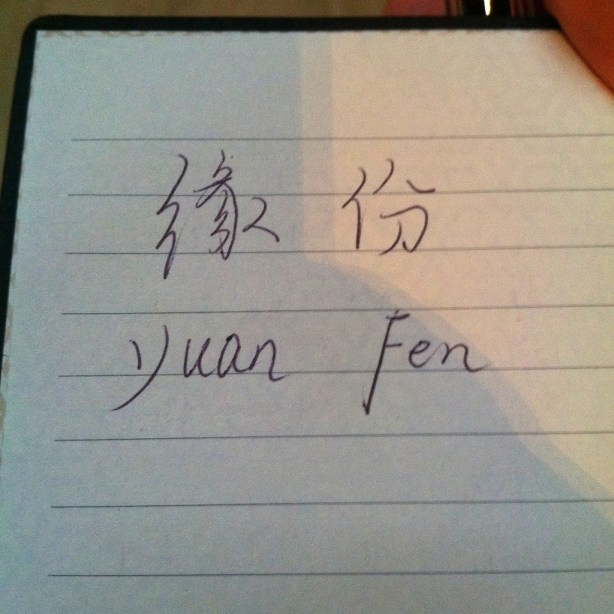 缘 份
Yuan Fen